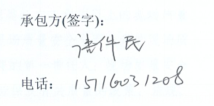 承包方(签字):
诸件民
电话: 15716031208